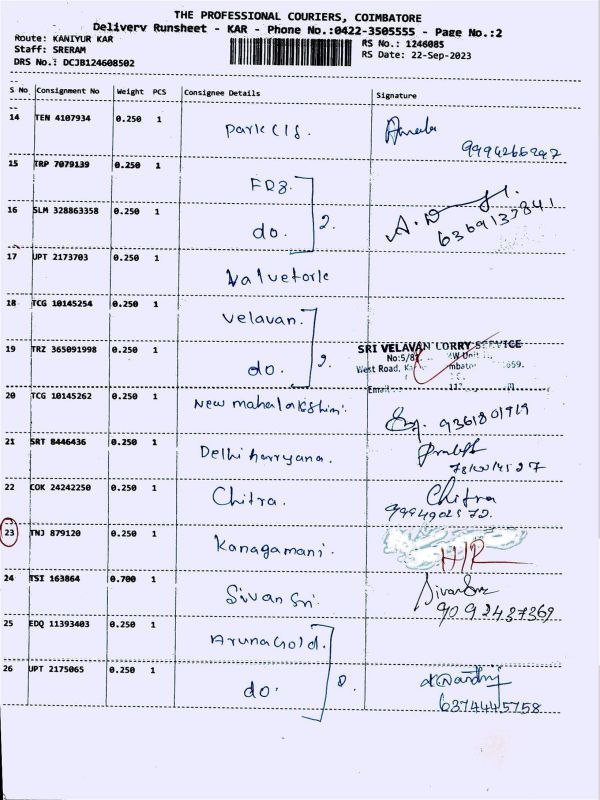 THE PROFESSIONAL COURIERS, COIMBATORE
Delivery Runsheet - KAR - Phone No.:0422-3505555 - Page No.:2
Route: KANIYUR KAR
RS No.: 1246085
Staff: SRERAM
RS Date: 22-Sep-2023
DRS No.: DCJB124608502
S No Consignment No Weight PCS Consignee Details Signature
14 TEN 4107934 0.250 1 Park CIS.
15 TRP 7079139 0.250 1 FDS.
16 SLM 328863358 0.250 1 do. 2. 6369133841
17 UPT 2173703 0.250 1 Valvetork
18 TCG 10145254 0.250 1 Velavan.
19 TRZ 365091998 0.250 1 do. 2.
SRI VELAVAN LORRY SERVICE
No:5/8
West Road,
Email
20 TCG 10145262 0.250 1 New mahalakshmi. 9361801919
21 SRT 8446436 0.250 1 Delhi harryana.
22 COK 24242250 0.250 1 Chitra. Chitra
9994902572.
23 TNJ 879120 0.250 1 Kanagamani. H/R
24 TSI 163864 0.700 1 Sivan Sri.
9092437369
25 EDQ 11393403 0.250 1 Aruna Gold.
26 UPT 2175065 0.250 1 do.
6374445758